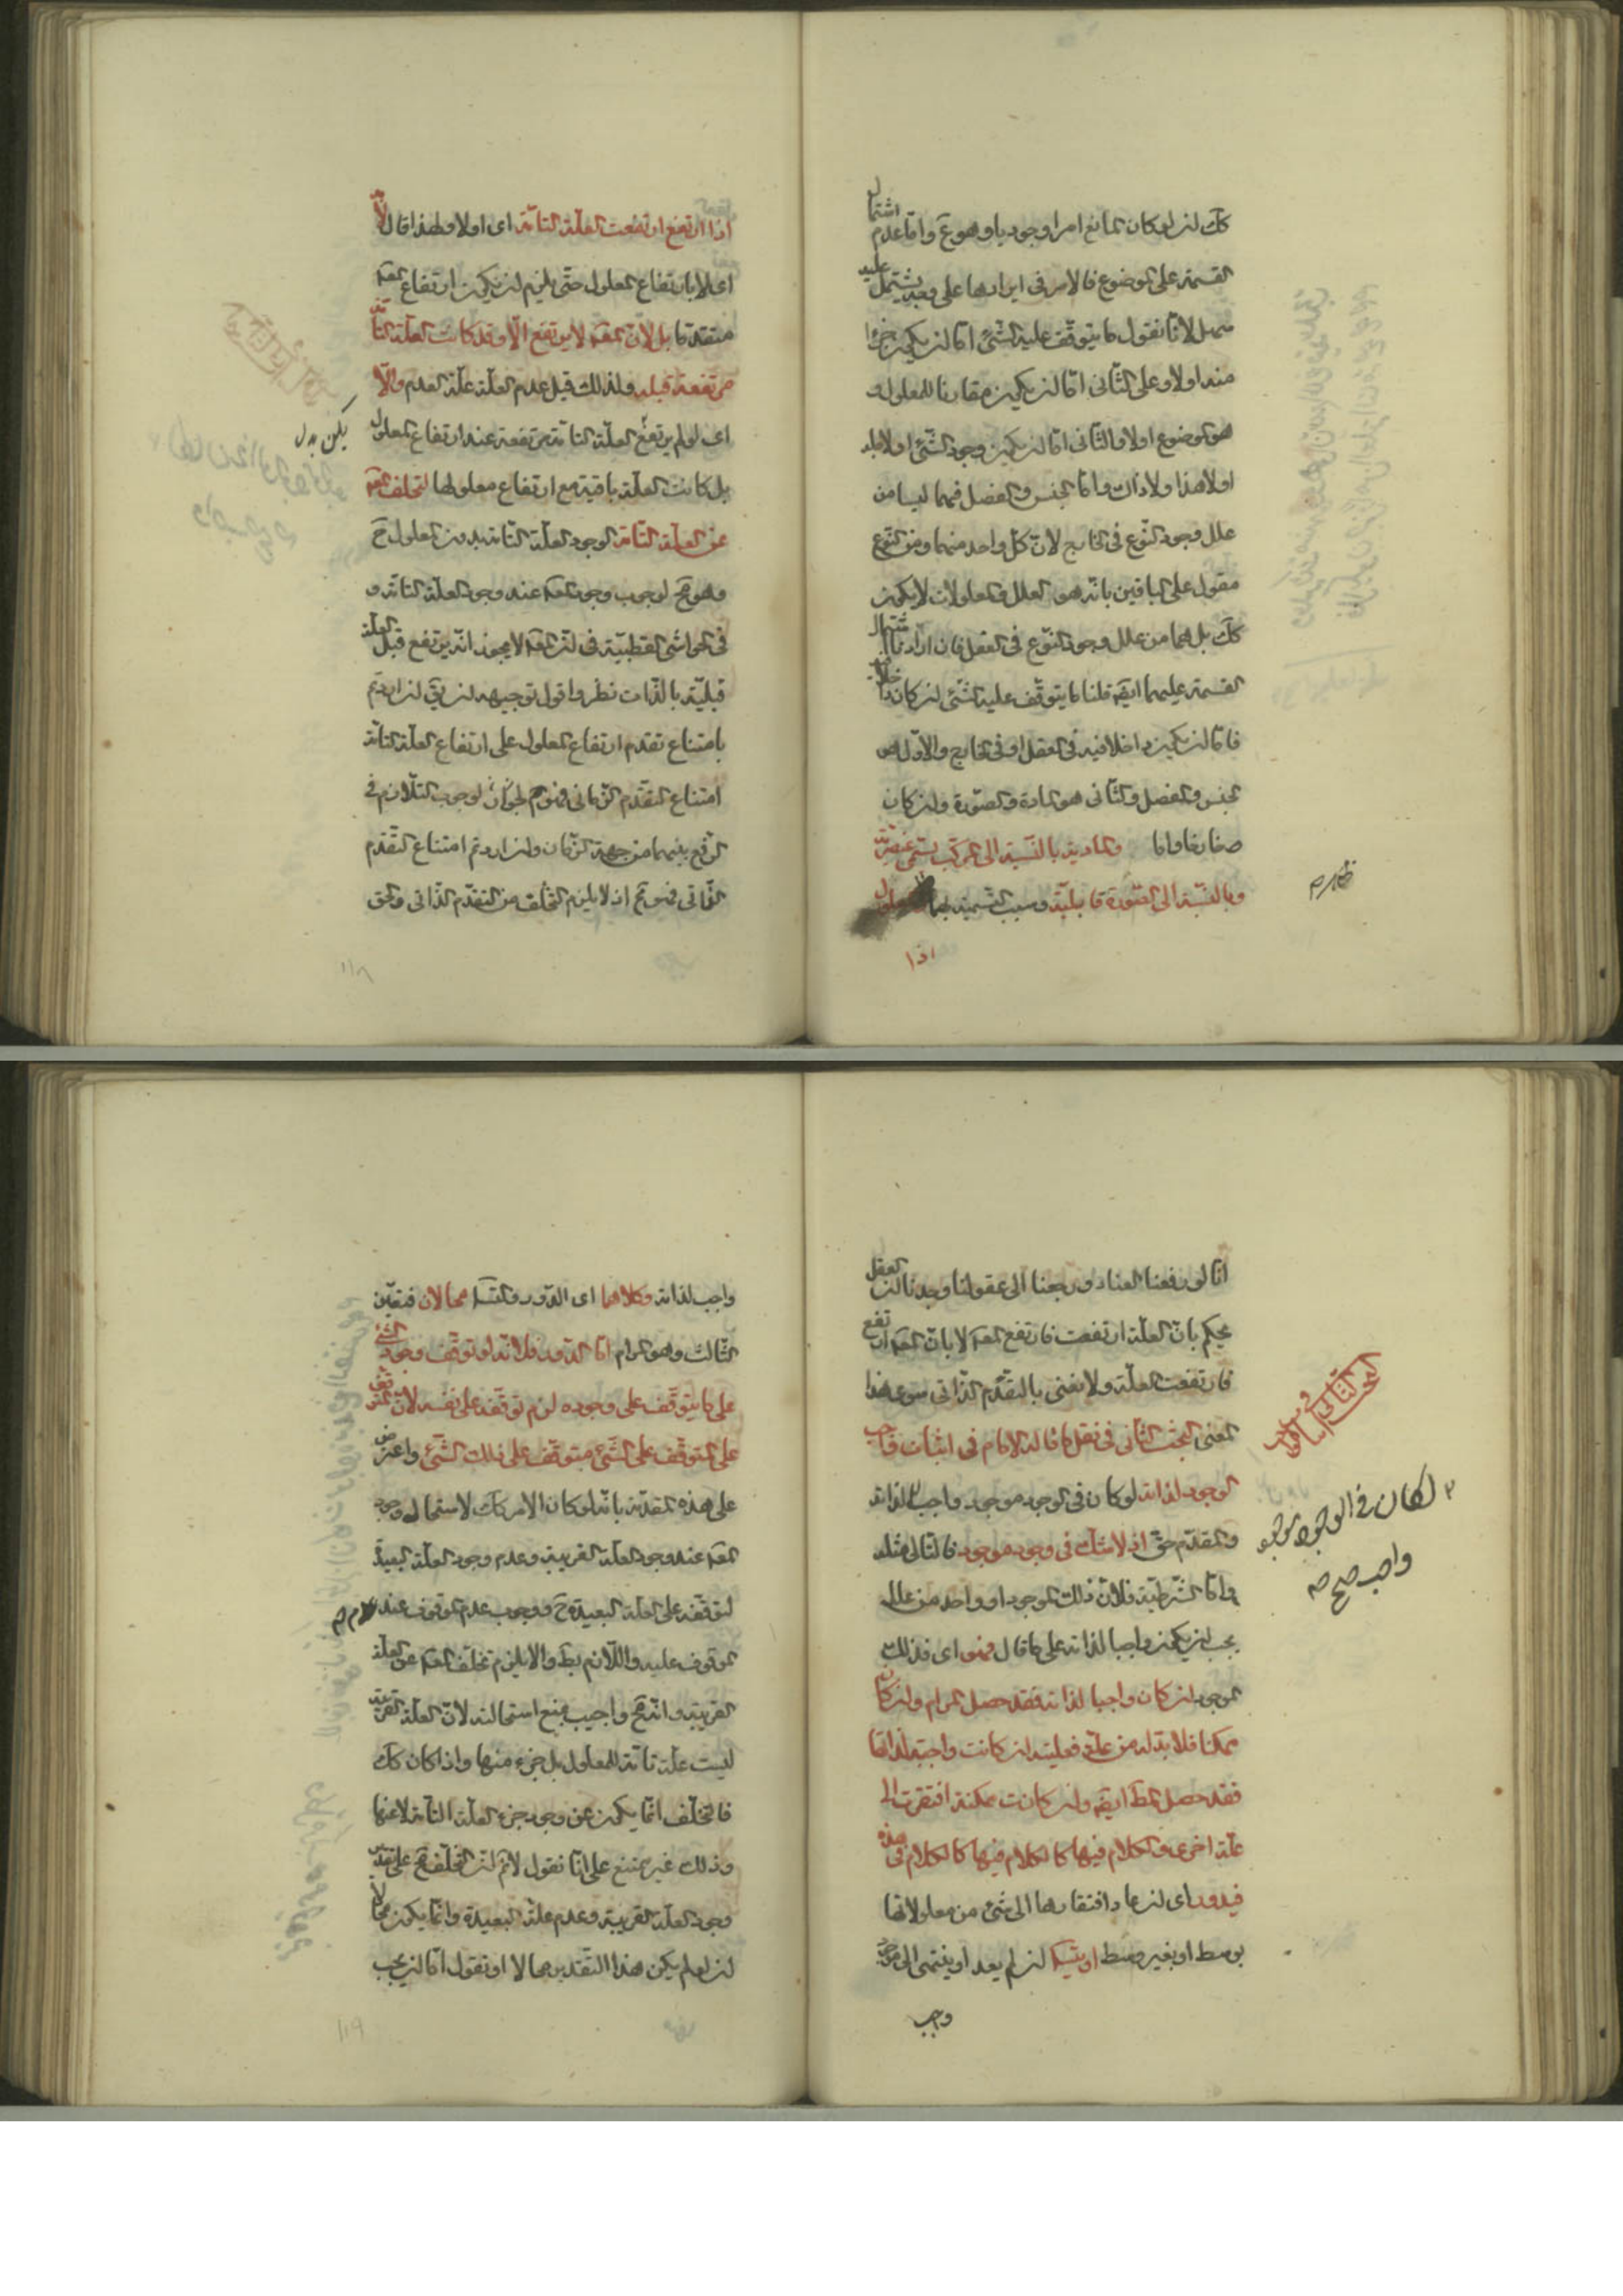 كك لن لو كان المانع امرا وجوديا وهو مم واما عدم اشتمال
القسمة على الموضوع فالامر فى ايرادها على وجه يشتمل عليه
سهل لانا نقول ما يتوقف عليه الشئ اما لن يكون جزءا
منه اولا وعلى الثانى اما لن يكون مقارنا للمعلول و
هو الموضوع اولا والثانى اما لن يكون وجود الشئ اولا
اولا هذا ولا ذاك واما الجنس والفصل فهما ليسا من
علل وجود النوع فى الخارج لان كل واحد منهما ومن النوع
مقول على الباقين بانه هو والعلل والمعلولات لا يكون
كك بل هما من علل وجود النوع فى العقل فان اردنا اشتمال
القسمة عليهما ايضا قلنا ما يتوقف عليه الشئ لن كان داخلا فيه
فاما لن يكون داخلا فيه فى العقل او فى الخارج والاول هو
الجنس والفصل والثانى هو المادة والصورة ولن كان
والمادية بالنسبة الى المركب تسمى عنصرية
وبالنسبة الى الصورة قابلية وسبب التسمية بهما المعلول
اذا
اذا ارتفع ارتفعت العلة التامة اى اولا ولهذا قال لا
اى لا بارتفاع المعلول حتى يلزم لن يكون ارتفاع المعلول
متقدما بل لان المعلول لا يرتفع الا وقد كانت العلة التامة
مرتفعة قبله ولذلك قيل عدم العلة علة العدم والا
اى لو لم يرتفع العلة التامة مرتفعة عند ارتفاع المعلول
يكن بدل
بل كانت العلة باقية مع ارتفاع معلولها لتخلف المعلول
عن العلة التامة لوجود العلة التامة بدون المعلول ح
وهو مح لوجوب وجود المعلول عند وجود العلة التامة و
فى الحواشى القطبية فى لن المعلول لا يجوز انه يرتفع قبل العلة
قبلية بالذات نظر واقول توجيهه لن يق لن اردتم
بامتناع تقدم ارتفاع المعلول على ارتفاع العلة التامة
امتناع التقدم الزمانى لوجوب التلازم فى
الرفع بينهما من جهة الزمان ولن اردتم امتناع التقدم
الذاتى فهو مم اذ لا يلزم التخلف من التقدم الذاتى والحق
١١٨
انا لو رفعنا العناد ورجعنا الى عقولنا وجدنا لن العقل
يحكم بان العلة ارتفعت فارتفع المعلول لا بان المعلول ارتفع
فارتفعت العلة ولا يعنى بالتقدم الذاتى سوى هذا
المعنى البحث الثانى فى نقل ما قاله الامام فى اثبات واجب
الوجود لذاته لو كان فى الوجود موجود واجبا لذاته
لكان فى الوجود موجود
واجب صح
والمقدم حق اذ لا شك فى وجود موجود فالتالى مثله
واما الشرطية فلان ذلك الموجود او واحد من علله
يجب لن يكون واجبا لذاته على ما قال فهو اى فذلك
الموجود لن كان واجبا لذاته فقد حصل المرام ولن كان
ممكنا فلا بد له من علة فعلته لن كانت واجبة لذاتها
فقد حصل المط ايضا ولن كانت ممكنة افتقرت الى
علة اخرى والكلام فيها كالكلام فيها كالكلام فى هذه
فيدور اى لن عاد افتقارها الى شئ من معلولاتها
بوسط او بغير وسط او يتسلسل لن لم يعد او ينتهى الى موجود
واجب
واجب لذاته وكلاهما اى الدور والتسلسل محالان فتعين
الثالث وهو المرام اما الدور فلانه لو توقف وجود الشئ
على ما يتوقف على وجوده لزم توقفه على نفسه لان المتوقف
على المتوقف على الشئ متوقف على ذلك الشئ واعترض
على هذه المقدمة بانه لو كان الامر كك لاستحال وجود
المعلول عند وجود العلة القريبة وعدم وجود العلة البعيدة
لتوقفه على العلة البعيدة ح ووجوب عدم الموقوف عند عدم
الموقوف عليه واللازم بط والا يلزم تخلف المعلول عن العلة
القريبة وانه مح واجيب بمنع استحالته لان العلة القريبة
ليست علة تامة للمعلول بل جزء منها واذا كان كك
فالتخلف انما يكون عن وجود جزء العلة التامة لا عنها
وذلك غير ممتنع على انا نقول لانم لن التخلف مح على تقدير
وجود العلة القريبة وعدم علة البعيدة وانما يكون محالا
لن لو لم يكن هذا التقدير محالا او نقول اما لن يجب
١١٩